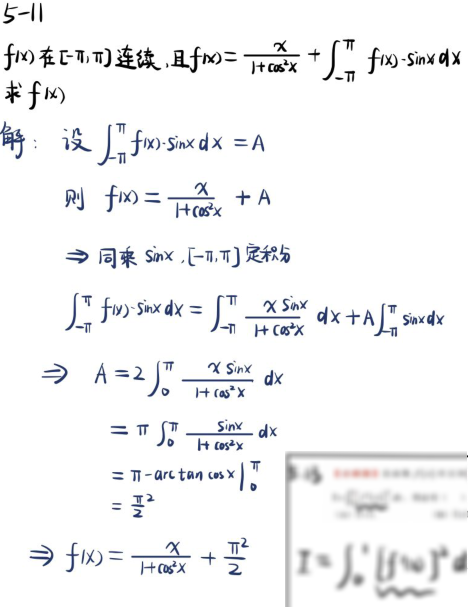 5-11
f(x)在[-π,π]连续,且f(x)= x/(1+cos²x) + ∫_{-π}^{π} f(x)·sinx dx
求f(x)
解: 设 ∫_{-π}^{π} f(x)·sinx dx = A
则 f(x)= x/(1+cos²x) + A
⇒ 同乘 sinx,[-π,π]定积分
∫_{-π}^{π} f(x)·sinx dx = ∫_{-π}^{π} x sinx/(1+cos²x) dx + A∫_{-π}^{π} sinx dx
⇒ A = 2∫_0^π x sinx/(1+cos²x) dx
= π ∫_0^π sinx/(1+cos²x) dx
= π-arctan cosx |_0^π
= π²/2
⇒ f(x)= x/(1+cos²x) + π²/2